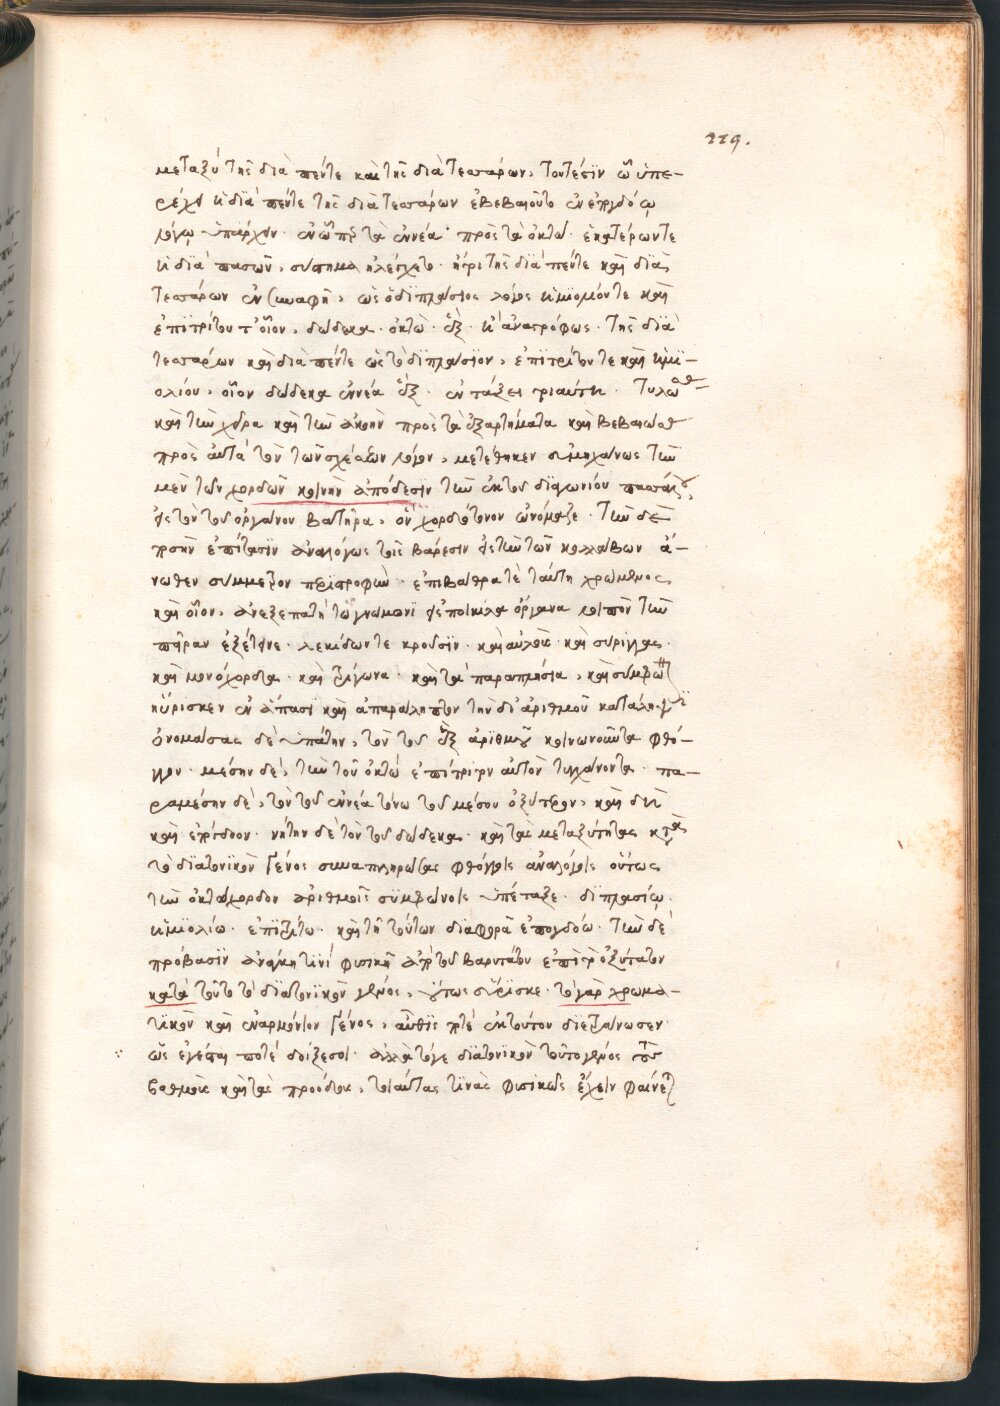 229.
μεταξύ τῆς διὰ πέντε καὶ τῆς διὰ τεσσάρων, τουτέστϊν ὧ ὑπε-
ρέχει ἡ διὰ πέντε τῆς διὰ τεσσάρων ἐβεβαιοῦτο ἐν ἐπογδόῳ
λόγῳ ὑπάρχειν· ἐν ὧπερ τὰ ἐννέα πρὸς τὰ ὀκτώ· ἑκατέρως τε
ἡ διὰ πασῶν, σύστημα ἠλέγχετο· ἤτοι τῆς διὰ πέντε καὶ διὰ
τεσσάρων ἐν συναφῆ, ὡς ὁ διπλάσιος λόγος ἡμϊολίου τε καὶ
ἐπϊτρίτου τ' οἷον, δώδεκα· ὀκτὼ· ἓξ· ἢ ἀναστρόφως· τῆς διὰ
τεσσάρων καὶ διὰ πέντε ὡς τὸ διπλάσϊον, ἐπϊτρίτου τε καὶ ἡμϊ-
ολίου, οἷον δώδεκα ἐννέα ἓξ· ἐν τάξει τοιαύτη· τυλώσας
καὶ τὴν χεῖρα καὶ τὴν ἀκοὴν πρὸς τὰ ἐξαρτήματα καὶ βεβαιώσας
πρὸς αὐτὰ τὸν τῶν σχέσεων λόγον, μετέθηκεν εὐμηχάνως τὴν
μὲν τῶν χορδῶν κοινὴν ἀπόδεσϊν τὴν ἐκ τοῦ διαγωνίου πασσάλου,
εἰς τὸν τοῦ ὀργάνου βατῆρα, ὃν χορδότονον ὠνόμαζε· τὴν δὲ
ποσὴν ἐπίτασϊν ἀναλόγως τοῖς βάρεσϊν εἰς τὴν τῶν κολλάβων ἄ-
νωθεν σύμμετρον περιστροφὴν· ἐπιβάθρα τὲ ταύτη χρώμενος,
καὶ οἷον, ἀνεξεπατή τῶ γνώμονϊ εἰς ποικίλα ὄργανα λοιπὸν τὴν
πεῖραν ἐξέτεινε· λεκίδων τε κροῦσϊν· καὶ αὐλοὺς καὶ σύριγγας·
καὶ μονόχορδα· καὶ τρίγωνα· καὶ τὰ παραπλήσια, καὶ σύμφωνον
ηὕρισκεν ἐν ἅπασϊ καὶ ἀπαράλλακτον τὴν δι' ἀριθμοῦ κατάληψϊν
ὀνομάσας δὲ ὑπάτην, τὸν τοῦ ἓξ ἀρϊθμοῦ κοινωνοῦντα φθό-
γγον· μέσην δὲ, τὴν τοῦ ὀκτώ ἐπίτριτον αὐτοῦ τυγχάνοντα· πα-
ραμέσην δὲ, τὸν τοῦ ἐννέα τόνω τοῦ μέσου ὀξύτερον, καὶ δὴ
καὶ ἐπόγδοον· νήτην δὲ τὸν τοῦ δώδεκα· καὶ τὰς μεταξύτητας κατὰ
τὸ διατονϊκὸν γένος συναπληρώσας φθόγγοις ἀναλόγοις οὕτως
τὴν ὀκτάχορδον ἀριθμοῖς συμφώνοις ὑπέταξε· διπλασίῳ·
ἡμϊολίω· ἐπϊτρίτω· καὶ τῆ τούτων διαφορᾶ ἐπογδόω· τὴν δὲ
πρόβασϊν ἀνάγκη τινὶ φυσικῆ ἀπὸ τοῦ βαρυτάτου ἐπὶ τὸ ὀξύτατον
κατὰ τοῦτο τὸ διατονϊκὸν γένος, οὕτως εὕρϊσκε· τὸ γὰρ χρωμα-
τϊκὸν καὶ ἐναρμόνιον γένος, αὖθϊς ποτὲ ἐκ τούτου διετράνωσεν
ὡς ἐνέσται ποτὲ δεῖξαι· ἀλλὰ τό γε διατονϊκὸν τοῦτο γένος τοὺς
βαθμοὺς καὶ τὰς προόδους, τοιαύτας τϊνὰς φυσϊκῶς ἔχειν φαίνεται